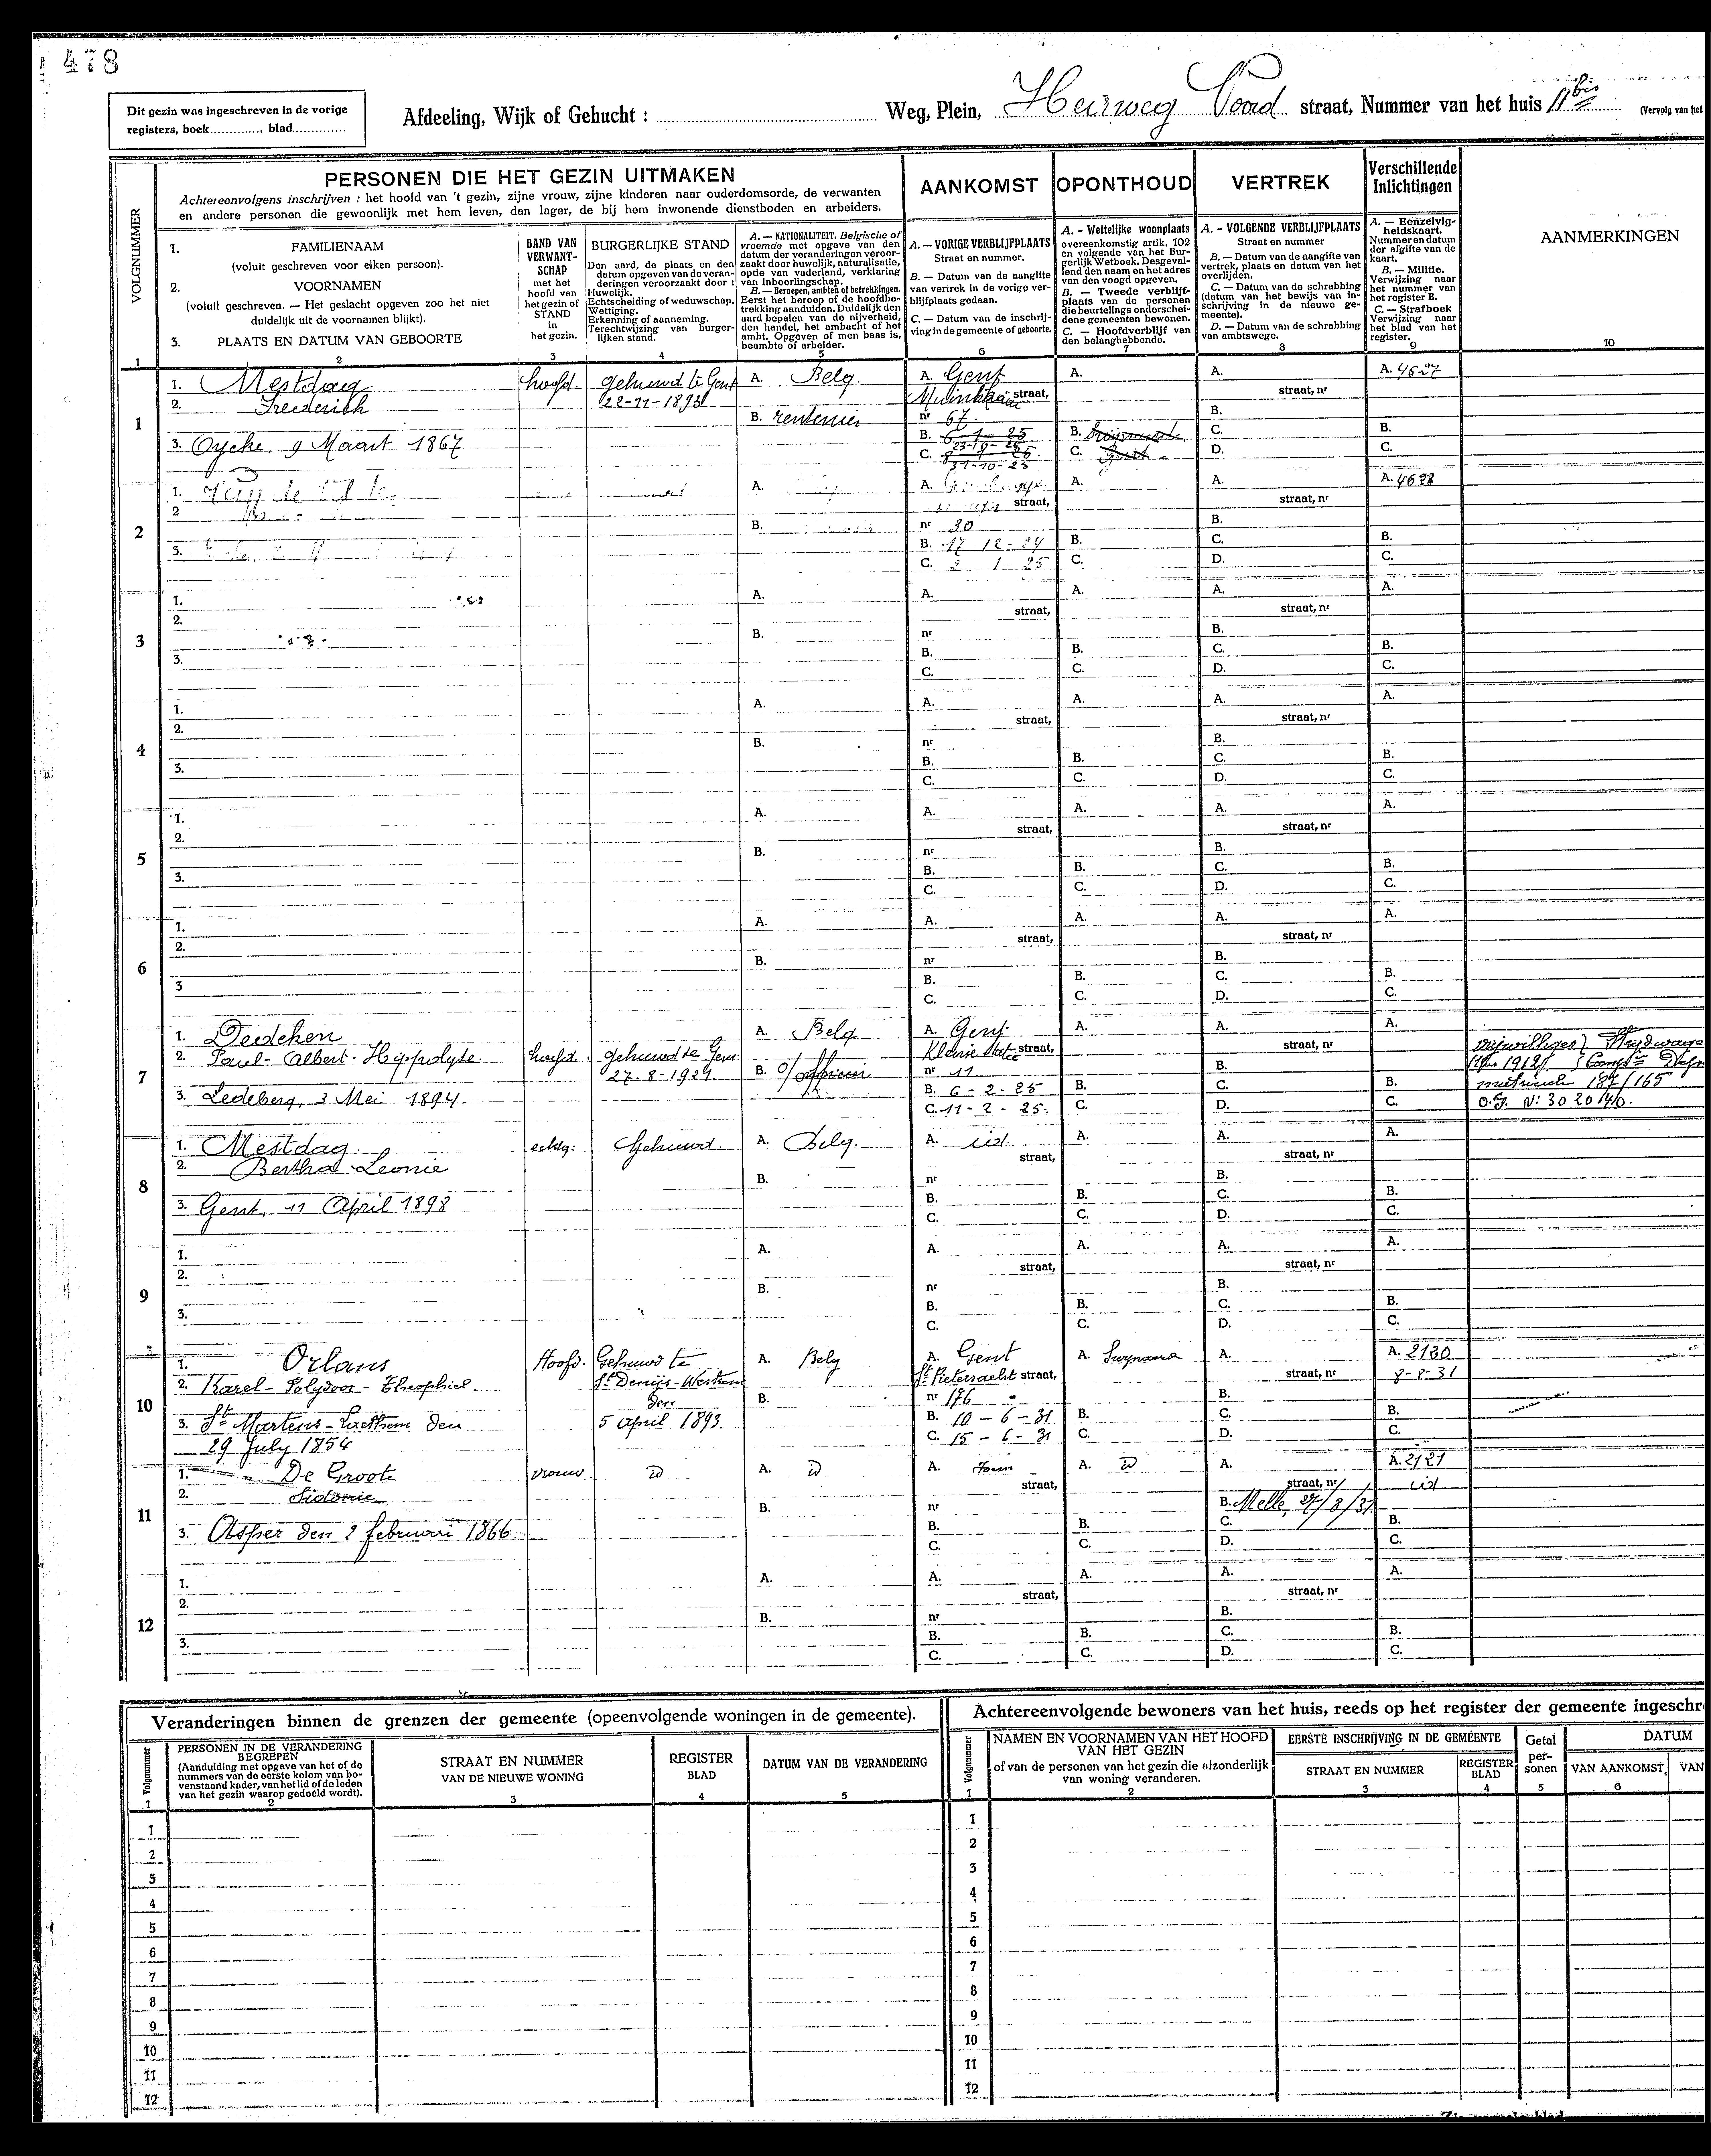 478
Dit gezin was ingeschreven in de vorige
registers, boek............, blad..............
Afdeeling, Wijk of Gehucht :
Weg, Plein, Heirweg Noord straat, Nummer van het huis 11bis
(Vervolg van het
PERSONEN DIE HET GEZIN UITMAKEN
Achtereenvolgens inschrijven : het hoofd van 't gezin, zijne vrouw, zijne kinderen naar ouderdomsorde, de verwanten
en andere personen die gewoonlijk met hem leven, dan lager, de bij hem inwonende dienstboden en arbeiders.
AANKOMST
OPONTHOUD
VERTREK
Verschillende
Inlichtingen
VOLGNUMMER
1.
FAMILIENAAM
(voluit geschreven voor elken persoon).
2.
VOORNAMEN
(voluit geschreven. — Het geslacht opgeven zoo het niet
duidelijk uit de voornamen blijkt).
3.
PLAATS EN DATUM VAN GEBOORTE
BAND VAN
VERWANT-
SCHAP
met het
hoofd van
het gezin of
STAND
in
het gezin.
BURGERLIJKE STAND
Den aard, de plaats en den
datum opgeven van de veran-
deringen veroorzaakt door :
Huwelijk.
Echtscheiding of weduwschap.
Wettiging.
Erkenning of aanneming.
Terechtwijzing van burger-
lijken stand.
A. — NATIONALITEIT. Belgische of
vreemde met opgave van den
datum der veranderingen veroor-
zaakt door huwelijk, naturalisatie,
optie van vaderland, verklaring
van inboorlingschap.
B. — Beroepen, ambten of betrekkingen.
Eerst het beroep of de hoofdbe-
trekking aanduiden. Duidelijk den
aard bepalen van de nijverheid,
den handel, het ambacht of het
ambt. Opgeven of men baas is,
beambte of arbeider.
A. — VORIGE VERBLIJFPLAATS
Straat en nummer.
B. — Datum van de aangifte
van vertrek in de vorige ver-
blijfplaats gedaan.
C. — Datum van de inschrij-
ving in de gemeente of geboorte.
A. - Wettelijke woonplaats
overeenkomstig artik. 102
en volgende van het Bur-
gerlijk Wetboek. Desgeval-
lend den naam en het adres
van den voogd opgeven.
B. — Tweede verblijf-
plaats van de personen
die beurtelings onderschei-
dene gemeenten bewonen.
C. — Hoofdverblijf van
den belanghebbende.
A. - VOLGENDE VERBLIJFPLAATS
Straat en nummer
B. — Datum van de aangifte van
vertrek, plaats en datum van het
overlijden.
C. — Datum van de schrabbing
(datum van het bewijs van in-
schrijving in de nieuwe ge-
meente).
D. — Datum van de schrabbing
van ambtswege.
A. — Eenzelvig-
heidskaart.
Nummer en datum
der afgifte van de
kaart.
B. — Militie.
Verwijzing naar
het nummer van
het register B.
C. — Strafboek
Verwijzing naar
het blad van het
register.
AANMERKINGEN
1 2 3 4 5 6 7 8 9 10
1
1. Mestdag
2. Frederik
3. Oycke, 9 Maart 1867
hoofd.
gehuwd te Gent
22-11-1893
A. Belg.
B. rentenier
A. Gent
straat,
nr 67.
B. 6-1-25
23-10-25
C. 8-1-25.
31-10-25
A.
B.
C.
A.
straat, nr
B.
C.
D.
A. 4627
B.
C.
2
1.
2
3.
A.
B.
A.
straat,
nr 30
B. 17-12-24
C. 2-1-25
A.
B.
C.
A.
straat, nr
B.
C.
D.
A. 4628
B.
C.
3
4
5
6
7
1. Dedeken
2. Paul-Albert-Hyppolyte.
3. Ledeberg, 3 Mei 1894.
hoofd.
gehuwd te Gent
27-8-1921
A. Belg
B. o/officier
A. Gent
Kleine straat,
nr 11
B. 6-2-25
C. 11-2-25.
vrijwilliger
matricule 187/165
O.J. N: 30 20 140.
8
1. Mestdag
2. Bertha Leonie
3. Gent, 11 April 1898
echtg:
Gehuwd
A. Belg.
A. id.
straat,
9
10
1. Orlans
2. Karel-Polydoor-Theophiel.
3. St Martens-Laethem den
29 July 1854
Hoofd.
Gehuwd te
St Denijs-Westrem
den
5 april 1893.
A. Belg
B.
A. Gent
St Pietersaelst straat,
nr 176
B. 10-6-31
C. 15-6-31
A. Swynaarde
A. 2120
8-8-31
11
1. De Groote
2. Sidonie
3. Asper den 2 februari 1866.
vrouw.
id
A. id
A.
A. id
straat, nr
B. Melle, 27/8/31
C.
D.
A. 2121
id
12
Veranderingen binnen de grenzen der gemeente (opeenvolgende woningen in de gemeente).
Achtereenvolgende bewoners van het huis, reeds op het register der gemeente ingeschre
Volgnummer
PERSONEN IN DE VERANDERING
BEGREPEN
(Aanduiding met opgave van het of de
nummers van de eerste kolom van bo-
venstaand kader, van het lid of de leden
van het gezin waarop gedoeld wordt).
STRAAT EN NUMMER
VAN DE NIEUWE WONING
REGISTER
BLAD
DATUM VAN DE VERANDERING
Volgnummer
NAMEN EN VOORNAMEN VAN HET HOOFD
VAN HET GEZIN
of van de personen van het gezin die afzonderlijk
van woning veranderen.
EERSTE INSCHRIJVING IN DE GEMEENTE
STRAAT EN NUMMER
REGISTER
BLAD
Getal
per-
sonen
DATUM
VAN AANKOMST
VAN
1 2 3 4 5
1 2 3 4 5 6
1 1
2 2
3 3
4 4
5 5
6 6
7 7
8 8
9 9
10 10
11 11
12 12